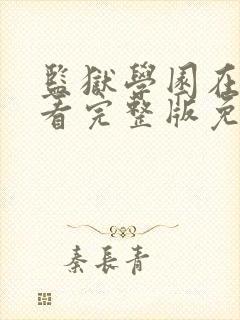 監獄學園在
看完整版免
秦長青